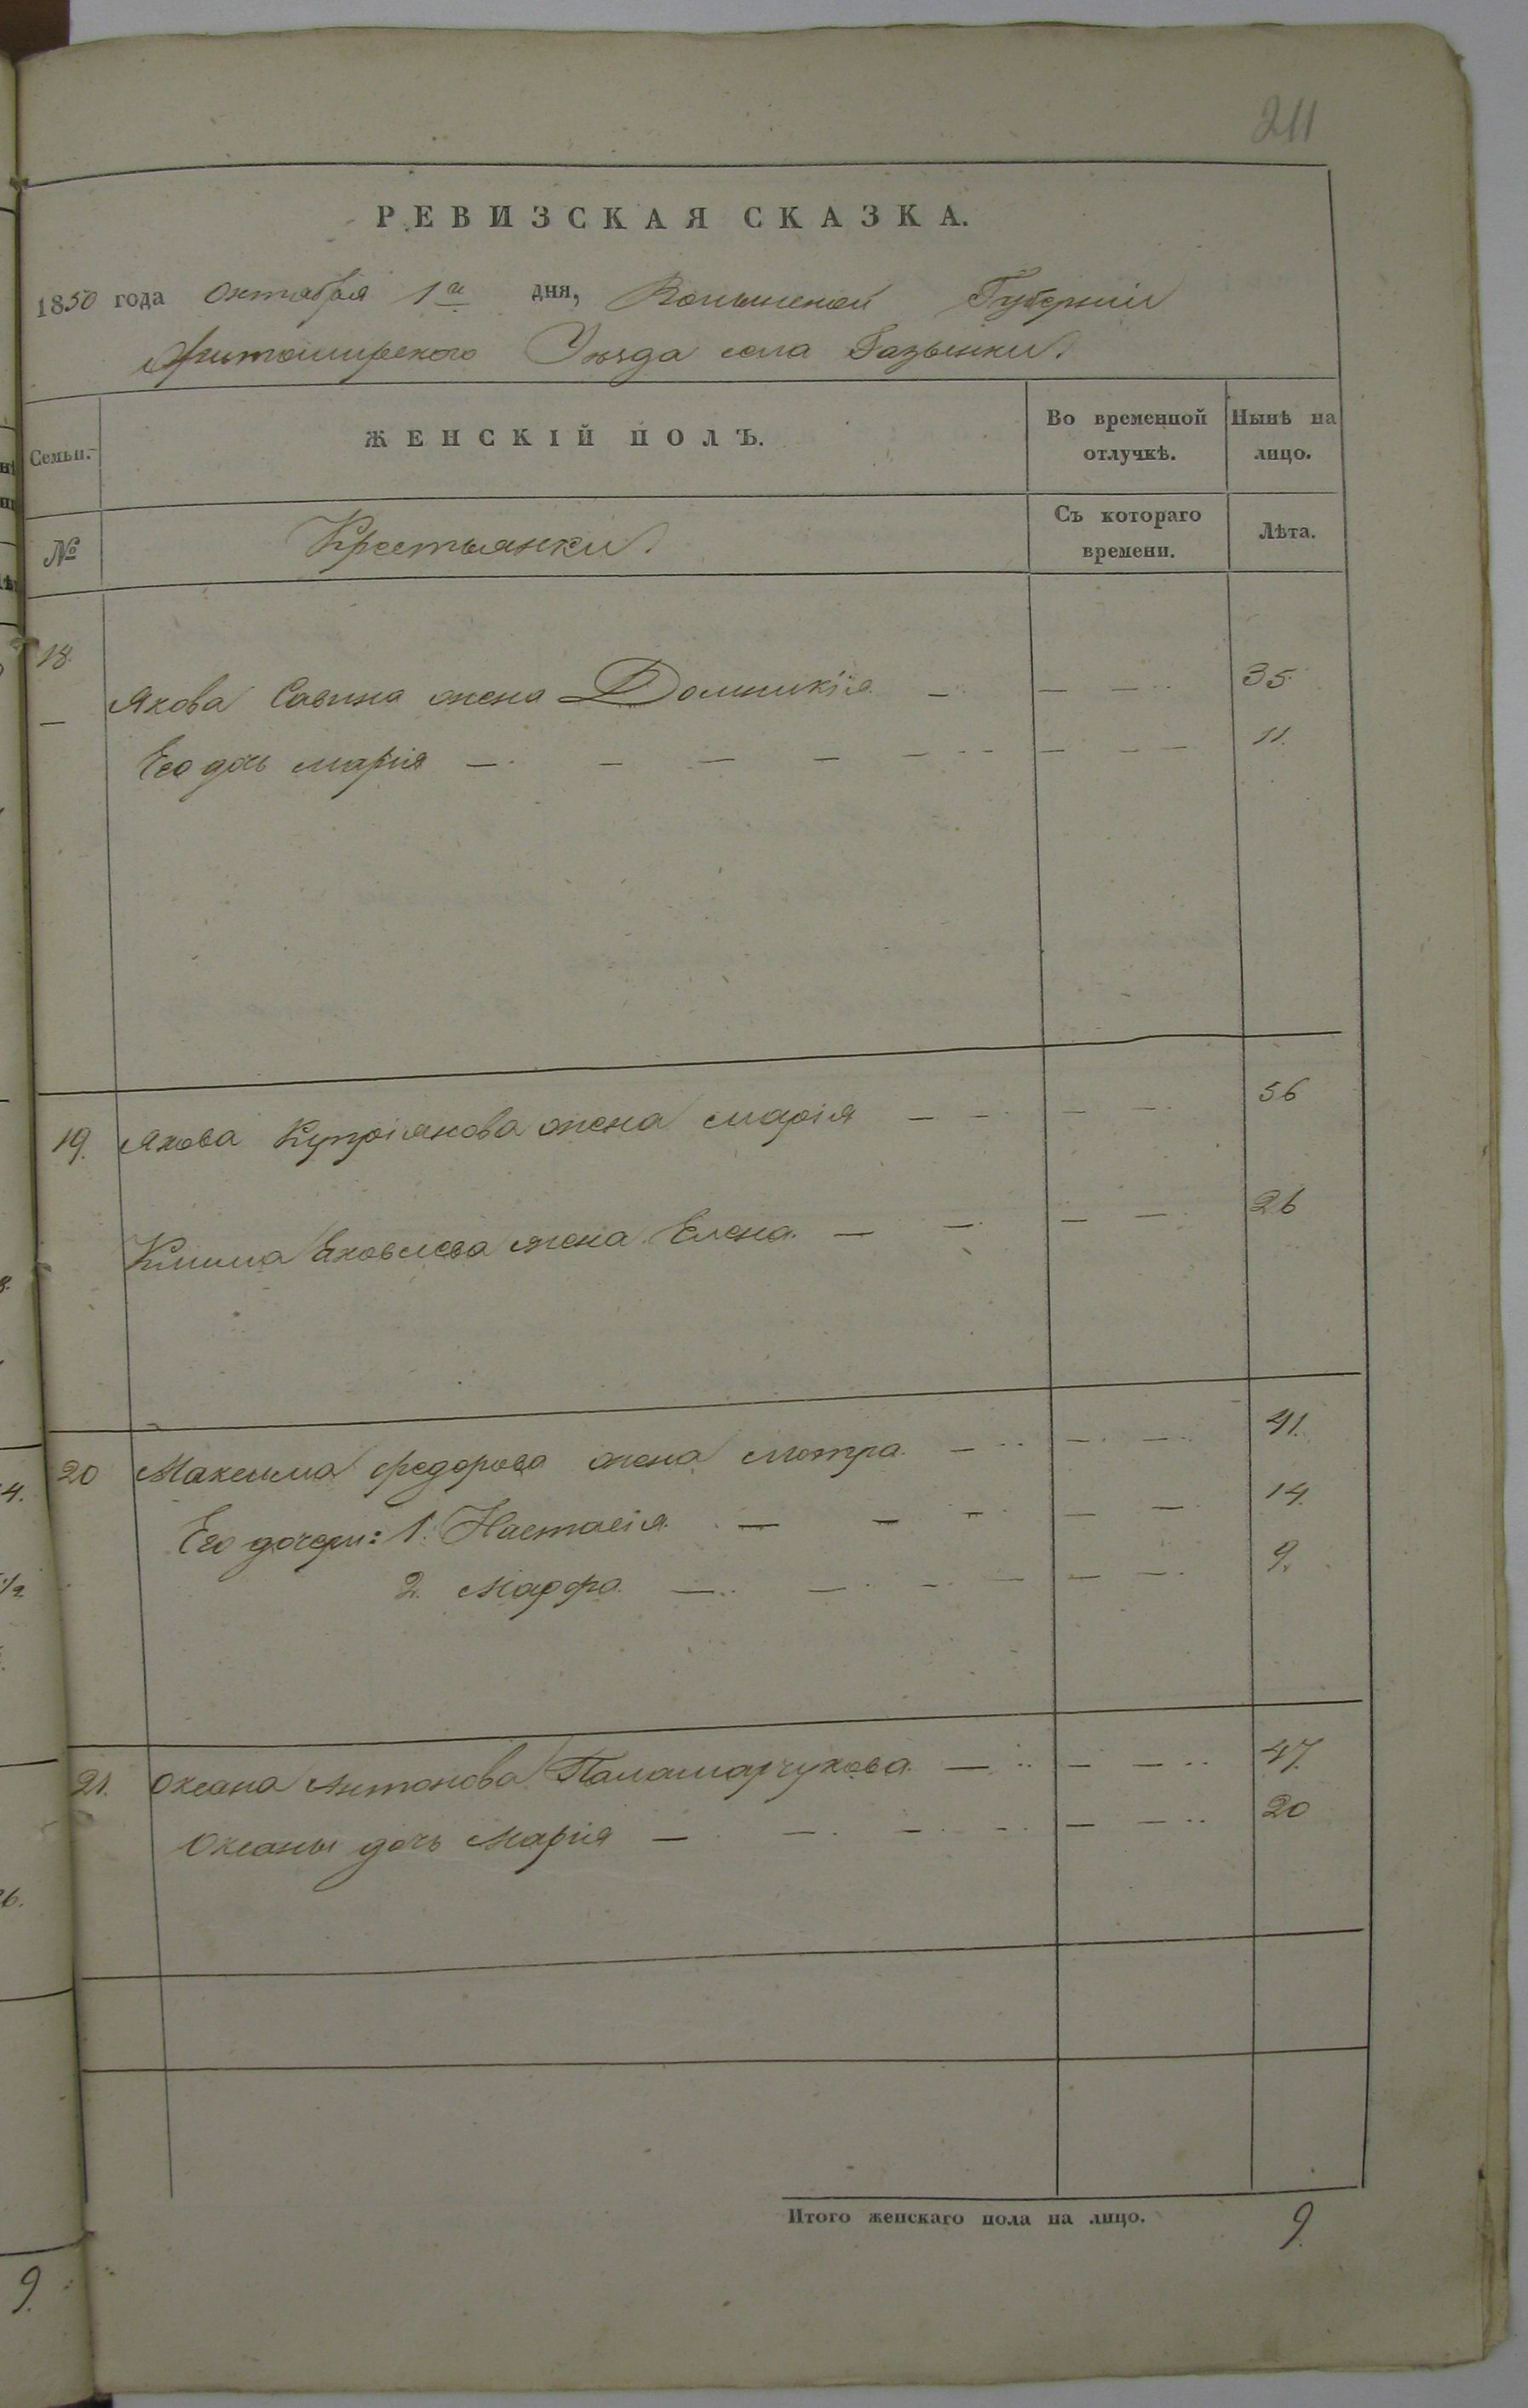 211
РЕВИЗСКАЯ СКАЗКА.
1850 года Октября 1го дня, Волынской Губерніи
Житомирского Уѣзда села Газынки.
Семьи. ЖЕНСКІЙ ПОЛЪ. Во временной отлучкѣ. Нынѣ на лицо.
№ Крестьянки. Съ котораго времени. Лѣта.
18.
Якова Савина жена Домникія — — — 35.
Его дочь Марія — — — — — — — — 11.
19. Якова Купріянова жена Марія — — — — 56
Клима Яковлева жена Елена. — — — — 26
20 Максима Федорова жена Мотря. — — — 41.
Его дочери: 1. Настасія. — — — — — 14.
2. Марфа. — — — — — — 9.
21. Оксана Антонова Паламарчукова. — — — 47.
Оксаны дочь Марія — — — — — — 20
Итого женскаго пола на лицо. 9.